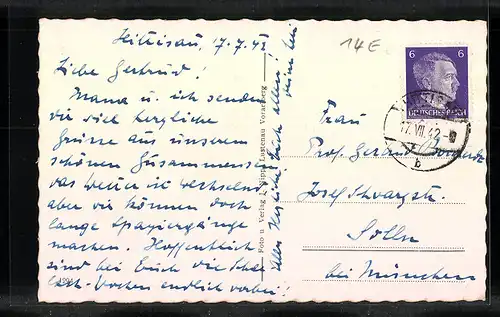 Hittisau, 17.7.42
Liebe Gertrud!
Mama u. ich senden
dir viel herzliche
Grüsse aus unserem
schönen Zusammensein
das Wetter ist wechselnd
aber wir können doch
lange Spaziergänge
machen. Hoffentlich
sind bei Euch die
Wochen endlich vorbei!
Alles Herzliche Euch allen!
Foto u. Verlag Lustenau Vorarlberg
14 E
6 6
DEUTSCHES REICH
17.VII.42
b
Frau
Prof. Gertrud
Josef Schwarzstr.
Solln
bei München